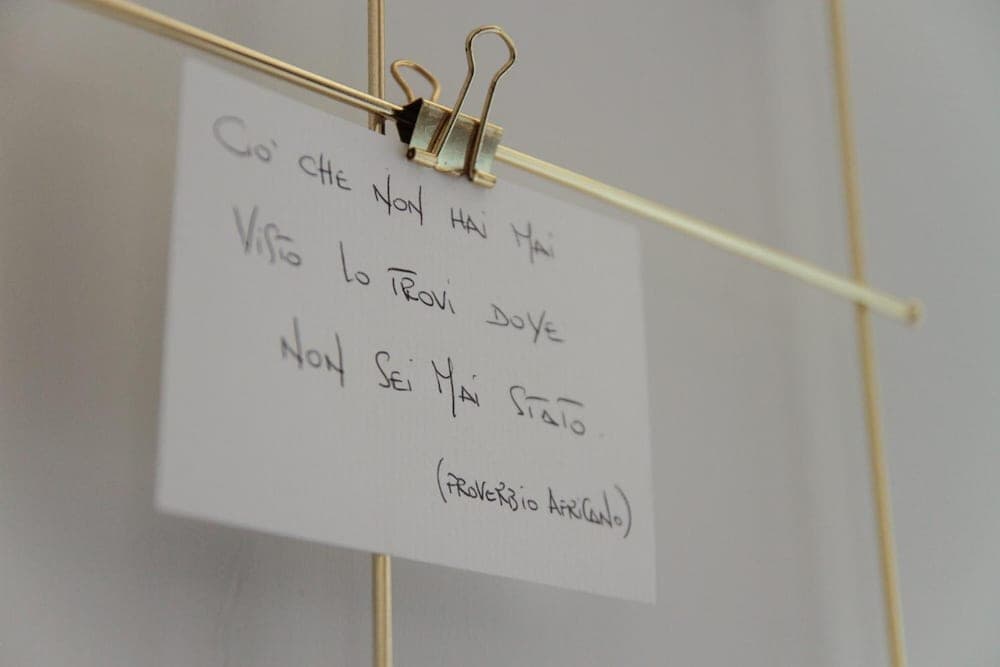 Ciò CHE NON HAI MAI
VISTO LO TROVI DOVE
NON SEI MAI STATO.
(PROVERBIO AFRICANO)